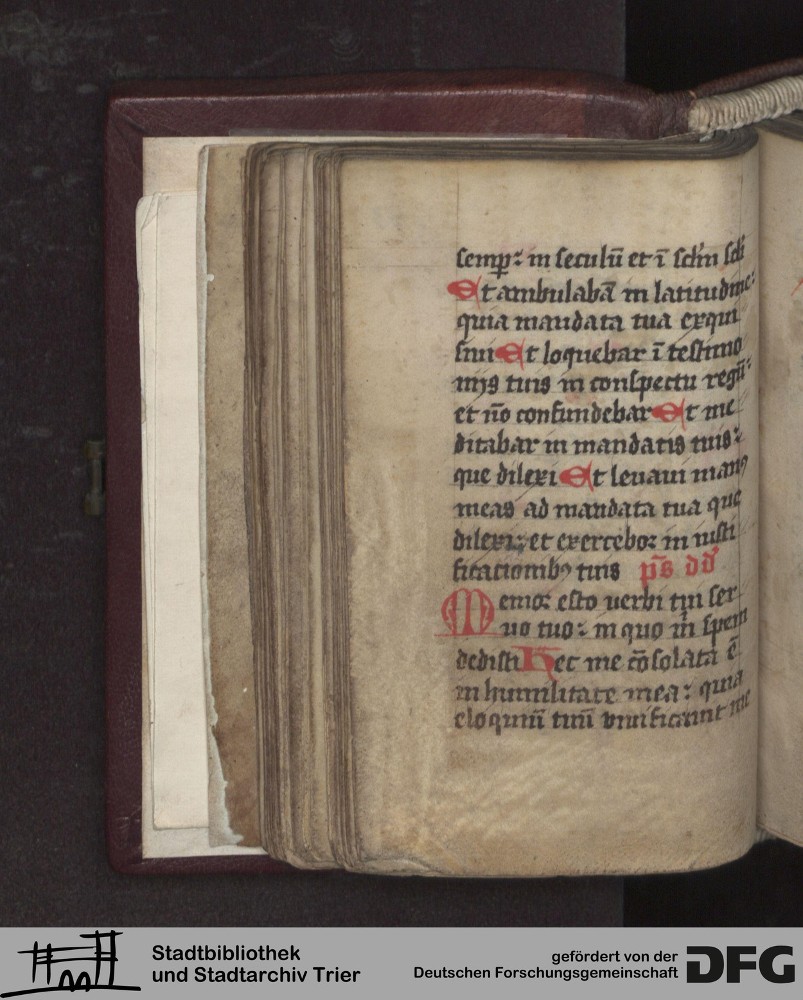 semp̲: in seculū et ī sclm̄ scli
Et ambulabā in latitudine:
quia mandata tua exqui
siui Et loquebar ī testimo
nijs tuis in conspectu regū:
et nō confundebar Et me
ditabar in mandatis tuis:
que dilexi Et leuaui manꝰ
meas ad mandata tua que
dilexi: et exercebor in iusti
ficationibꝰ tuis p̄s dd
Memor esto uerbi tui ser
uo tuo: in quo m̄ spem
dedisti Hec me cōsolata ē
in humilitate mea: quia
eloquiū tuū viuificauit me
Stadtbibliothek
und Stadtarchiv Trier
gefördert von der
Deutschen Forschungsgemeinschaft
DFG